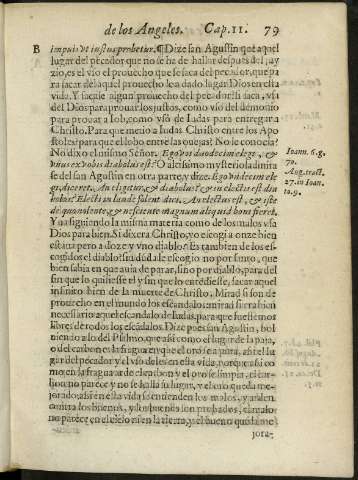 de los Angeles. Cap. 11. 79
B impius vt iustus probetur. ¶ Dize san Agustin que aquel
lugar del pecador que no se ha de hallar despues del juy
zio, es el vso el prouecho que se saca del pecador, que pa
ra sacar del aquel prouecho le a dado lugar Dios en esta
vida. Y sacase algun prouecho del pecador? si saca, vsa
del Dios para prouar los justos, como vso del demonio
para prouar a Iob, como vso de Iudas para entregar a
Christo. Para que metio a Iudas Christo entre los Apo
stoles? para que el lobo entre las ouejas? No le conocia?
No dixo el mismo Señor. Ego vos duodecim elegi, &
vnus ex vobis diabolus est? O altissimo mysterio! admira
se del san Agustin en otra parte, y dize. Ego vndecim ele
gi, di
Y va siguiendo la misma materia como de los malos vsa
Dios para bien. Si dixera Christo, yo escogi a onze bien
esta: pero a doze y vno diablo? Es tambien de los es-
cogidos el diablo? sin duda le escogio no por santo, que
bien sabia en que auia de parar, sino por diablo, para del
sin que lo quisiesse el y sin que lo entendiesse, sacar aquel
infinito bien de la muerte de Christo. Mirad si son de
prouecho en el mundo los escandalos:
necessario aquel escandalo de Iudas, para que fuessemos
libres de todos los escãdalos. Dize pues san Agustin, bol
uiendo a lo del Psalmo, que assi como el lugar de la paja,
o del carbon es la fragua en que el oro se apura, assi el lu
gar del pecador y el vso del es en esta vida, porque assi co
mo en la fragua arde el carbon y el oro se limpia, el car-
bon no parece y no se halla su lugar, y el oro queda me-
jorado, assi en esta vida se entienden los malos, y arden
contra los buenos, y los buenos son prouados, el malo
no parece en el cielo ni en la tierra, y el bueno queda me
jora-
Ioann. 6. g.
70.
Aug. tract.
27. in Ioan.
to. 9.